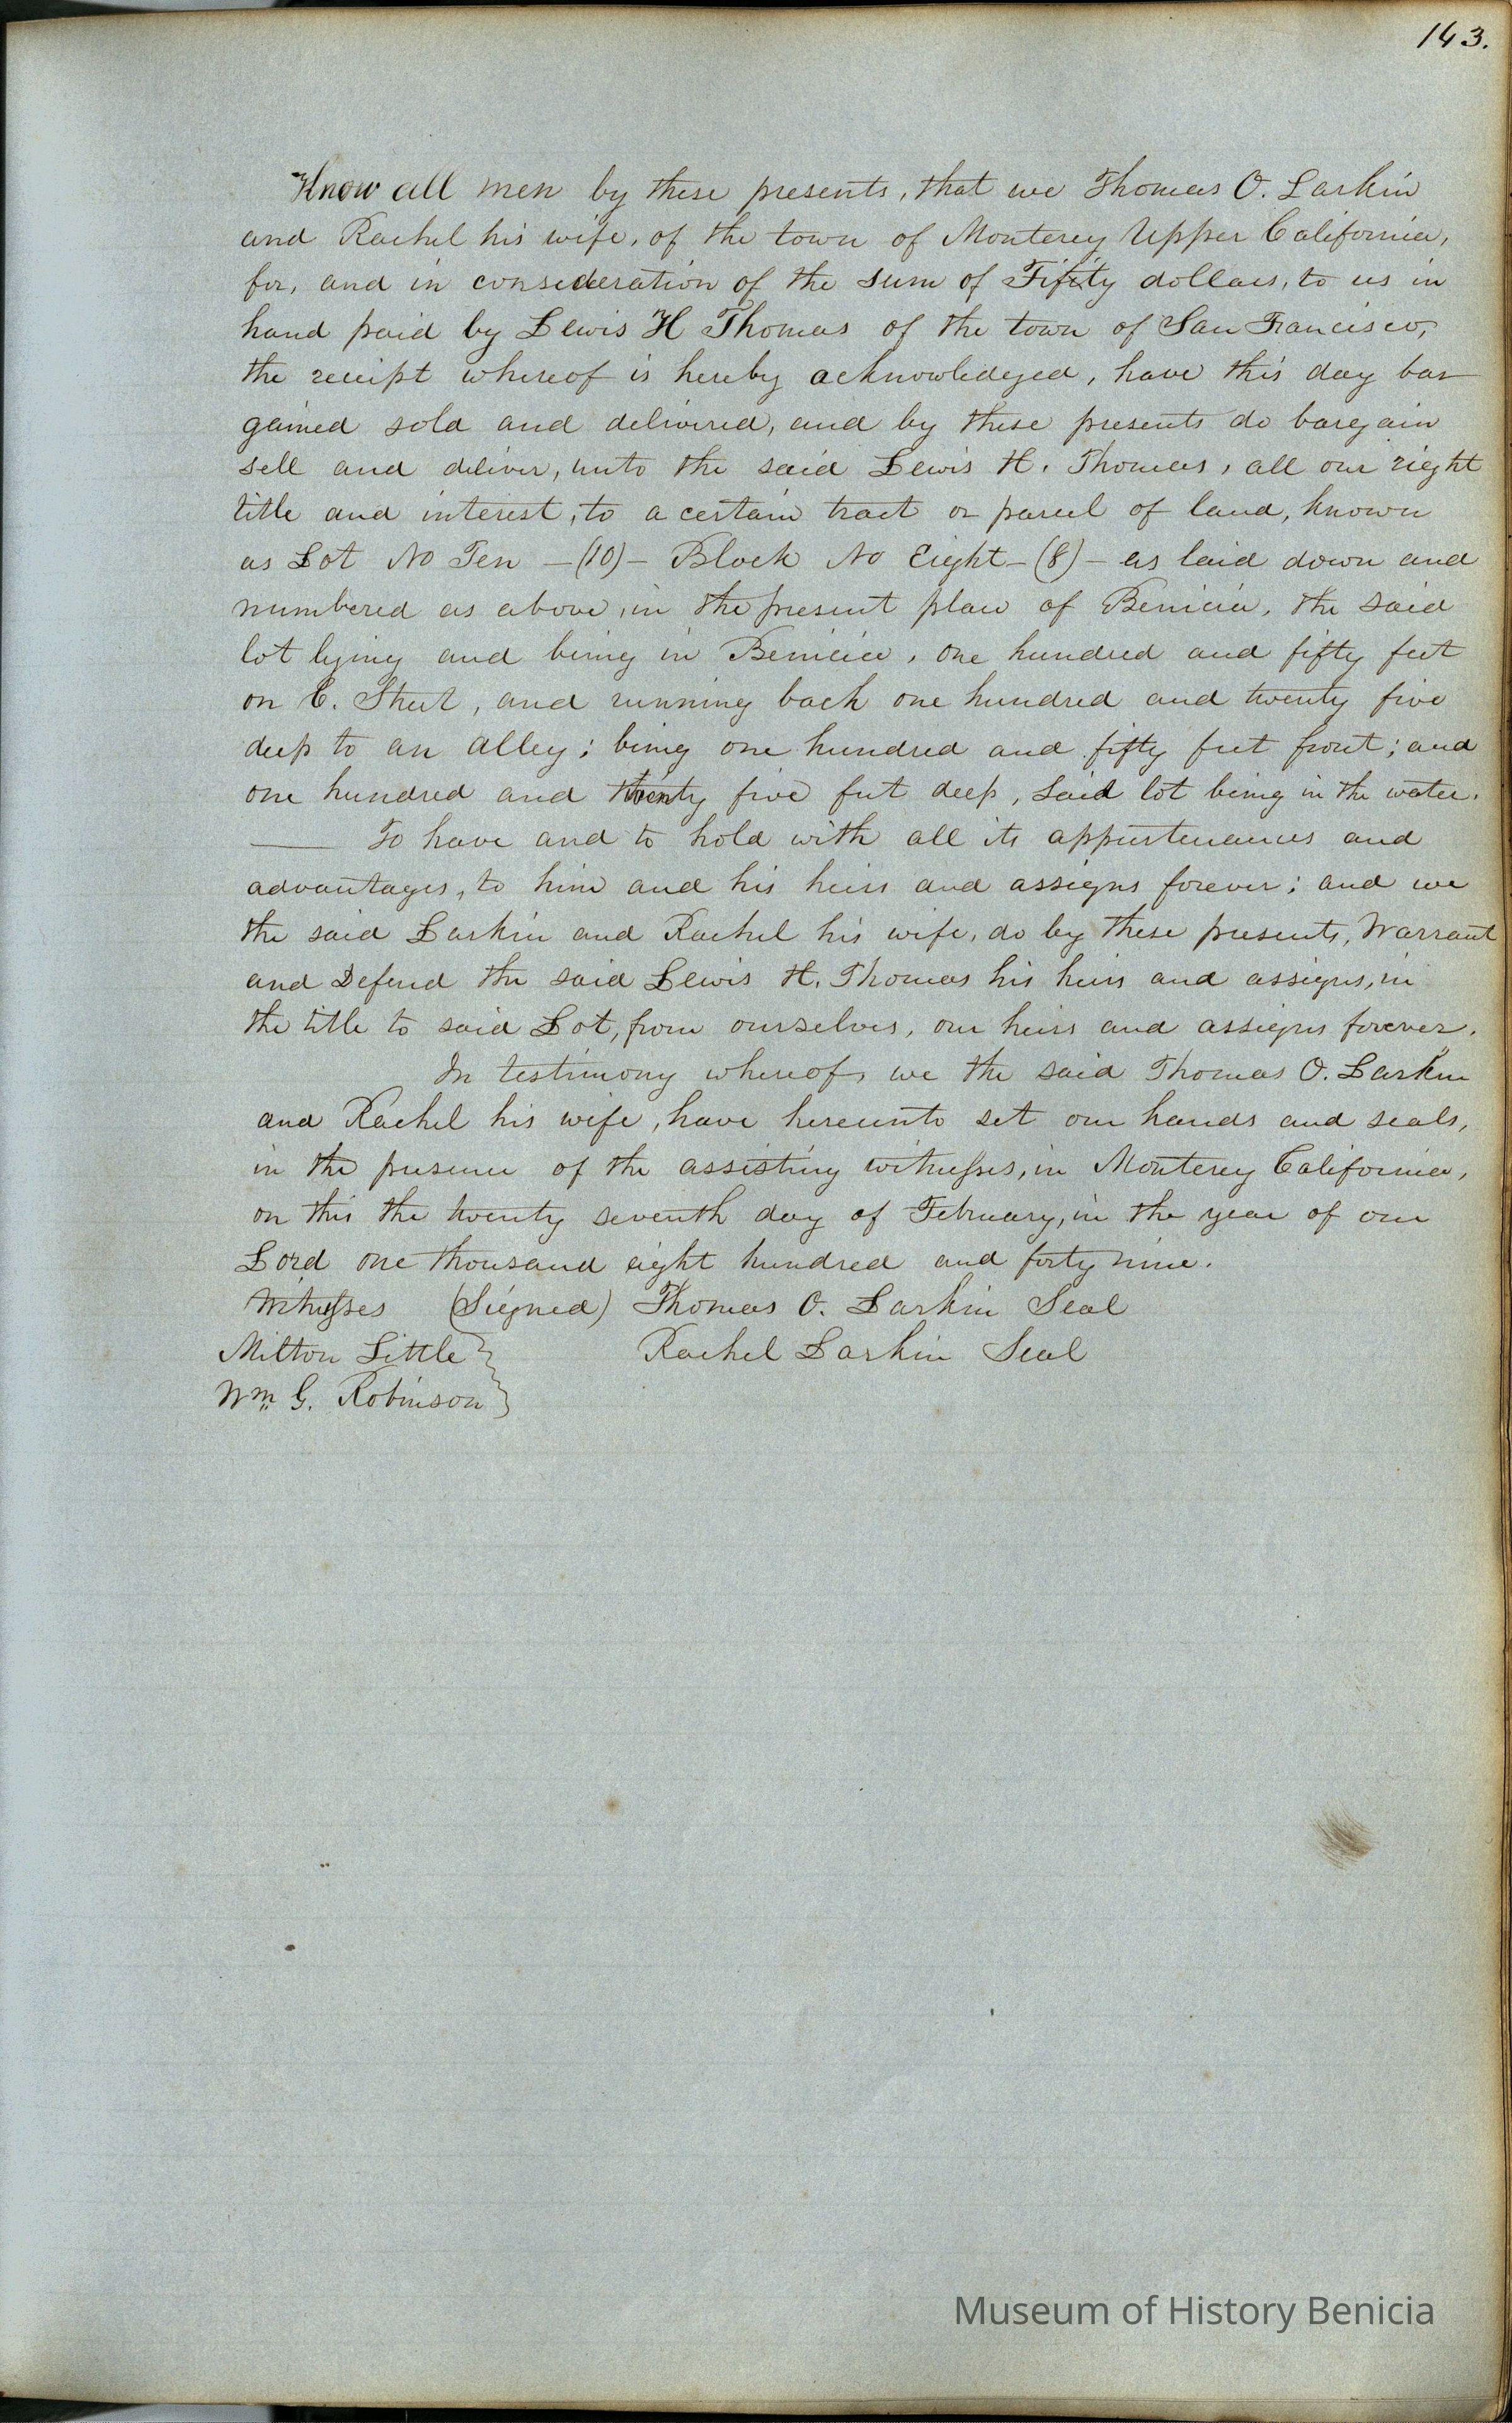 143.
Know all men by these presents, that we Thomas O. Larkin
and Rachel his wife, of the town of Monterey Upper California,
for, and in consederation of the sum of Fifity dollars, to us in
hand paid by Lewis H Thomas of the town of San Francisco,
the receipt whereof is hereby acknowledged, have this day bar
gained sold and delivered, and by these presents do bargain
sell and deliver, unto the said Lewis H. Thomas, all our right
title and interest, to a certain tract or parcel of land, known
as Lot No Ten -(10)- Block No Eight -(8)- as laid down and
numbered as above, in the present plan of Benicia, the said
lot lying and being in Benicia, one hundred and fifty feet
on C. Street, and running back one hundred and twenty five
deep to an alley; being one hundred and fifty feet front; and
one hundred and twenty five feet deep, said lot being in the water.
To have and to hold with all its appurtenances and
advantages, to him and his heirs and assigns forever; and we
the said Larkin and Rachel his wife, do by these presents, Warrant
and Defend the said Lewis H. Thomas his heirs and assigns, in
the title to said Lot, from ourselves, our heirs and assigns forever.
In testimony whereof, we the said Thomas O. Larkin
and Rachel his wife, have hereunto set our hands and seals,
in the presence of the assisting witnesses, in Monterey California,
on this the twenty seventh day of February, in the year of our
Lord one thousand eight hundred and forty nine.
Witnesses (Signed) Thomas O. Larkin Seal
Milton Little Rachel Larkin Seal
Wm G. Robinson
Museum of History Benicia